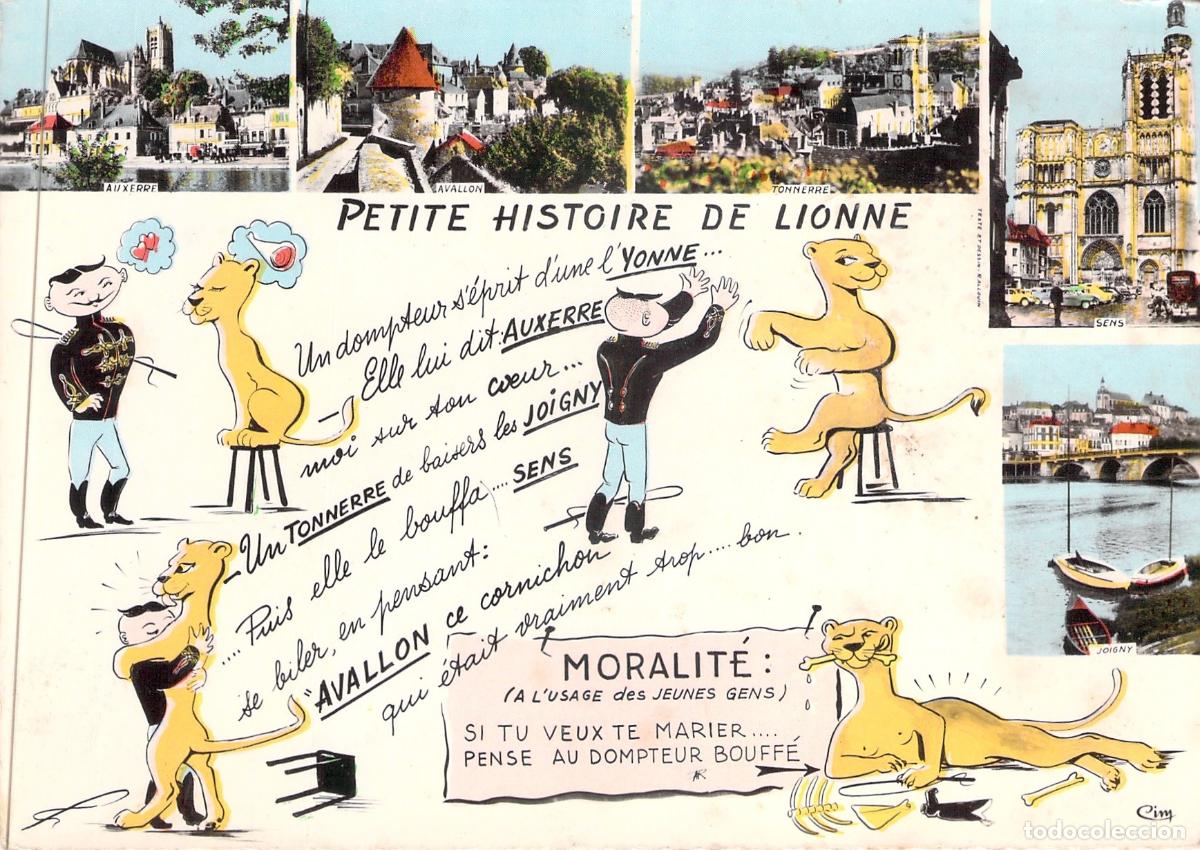 AUXERRE
AVALLON
TONNERRE
SENS
PETITE HISTOIRE DE LIONNE
Un dompteur s'éprit d'une l'YONNE...
_ Elle lui dit: AUXERRE
moi sur ton coeur...
_ Un TONNERRE de baisers les JOIGNY
.... Puis elle le bouffa.... SENS
se biler, en pensant:
"AVALLON ce cornichon
qui était vraiment trop.... bon.
MORALITÉ:
(A L'USAGE des JEUNES GENS)
SI TU VEUX TE MARIER....
PENSE AU DOMPTEUR BOUFFÉ
AR
TEXTE ET DESSIN R. ALLOUIN
JOIGNY
Cim
todocoleccion